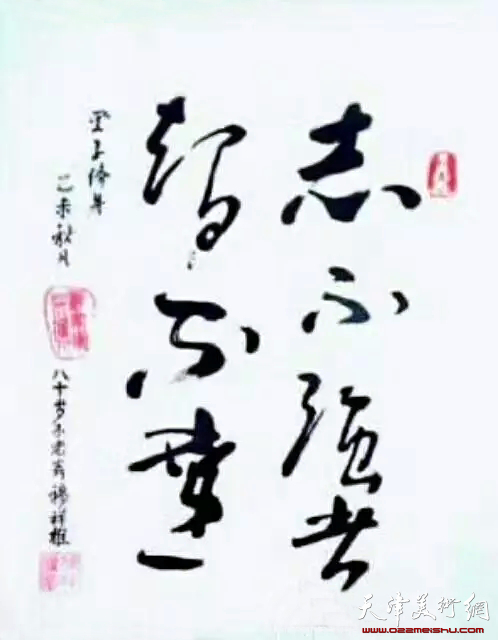 志不强者
智不達
墨子修身
乙未秋月
八十岁不老翁穆祥雄
天津美術網
www.022meishu.com